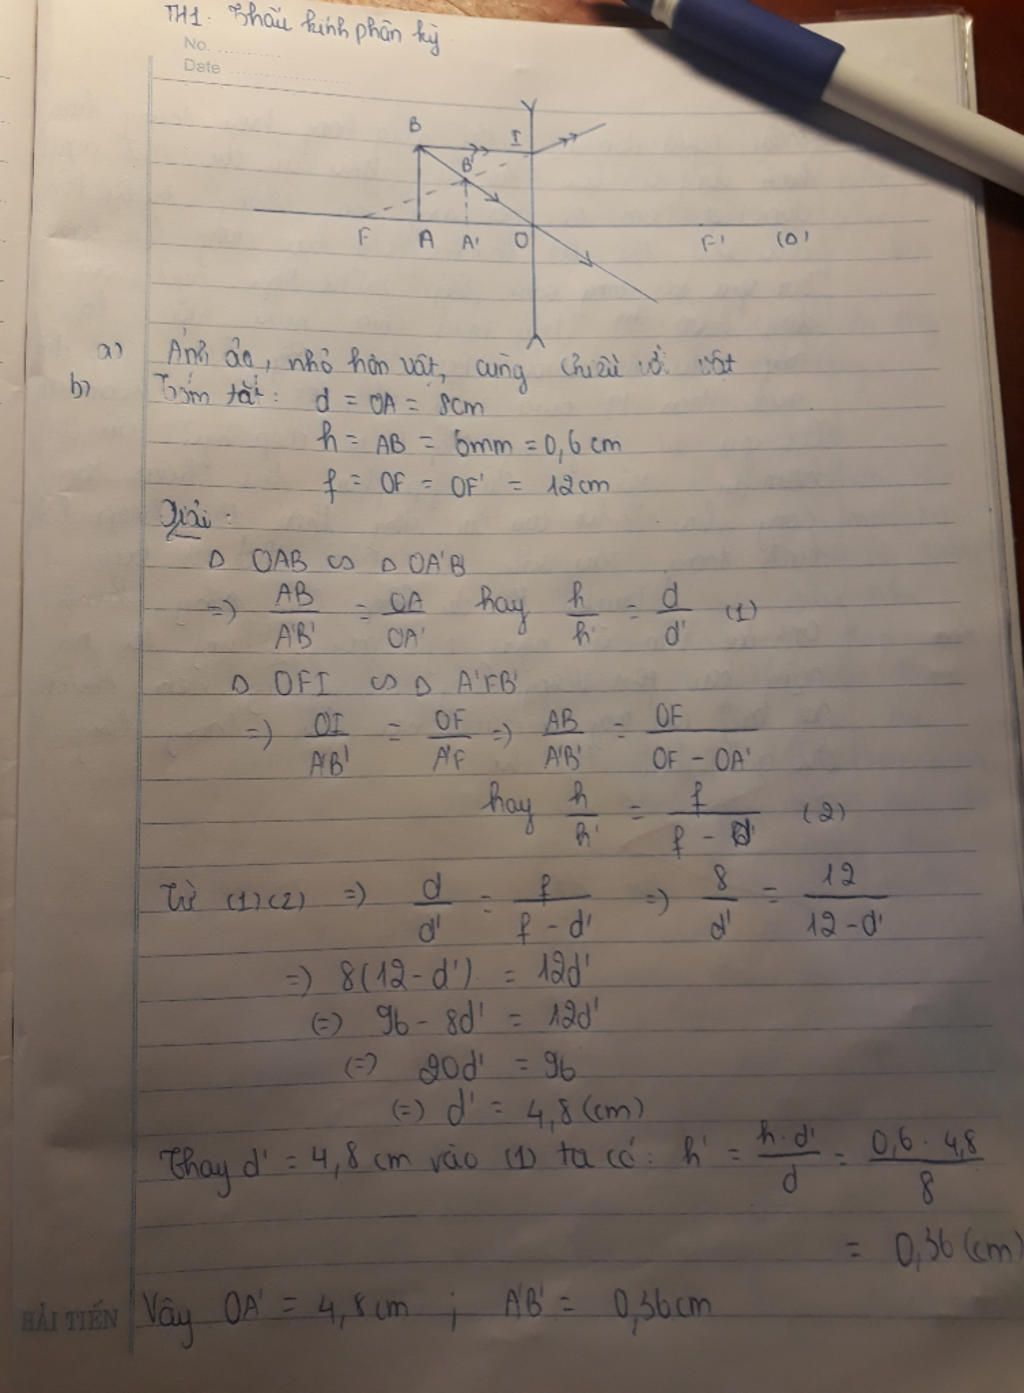 TH1. Thấu kính phân kỳ
No. ............
Date ......................
B I
B'
F A A' O F' (O')
a) Ảnh ảo, nhỏ hơn vật, cùng chiều với vật
b) Tóm tắt: d = OA = 8cm
h = AB = 6mm = 0,6 cm
f = OF = OF' = 12cm
Giải:
Δ OAB ∽ Δ OA'B'
=) AB/A'B' = OA/OA' hay h/h' = d/d' (1)
Δ OFI ∽ Δ A'FB'
=) OI/A'B' = OF/A'F =) AB/A'B' = OF/OF - OA'
hay h/h' = f/f - d' (2)
Từ (1)(2) =) d/d' = f/f - d' =) 8/d' = 12/12-d'
=) 8(12-d') = 12d'
(=) 96 - 8d' = 12d'
(=) 20d' = 96
(=) d' = 4,8 (cm)
Thay d' = 4,8 cm vào (1) ta có: h' = h.d'/d = 0,6 . 4,8/8
= 0,36 (cm)
Vậy OA' = 4,8cm ; A'B' = 0,36cm
HẢI TIẾN